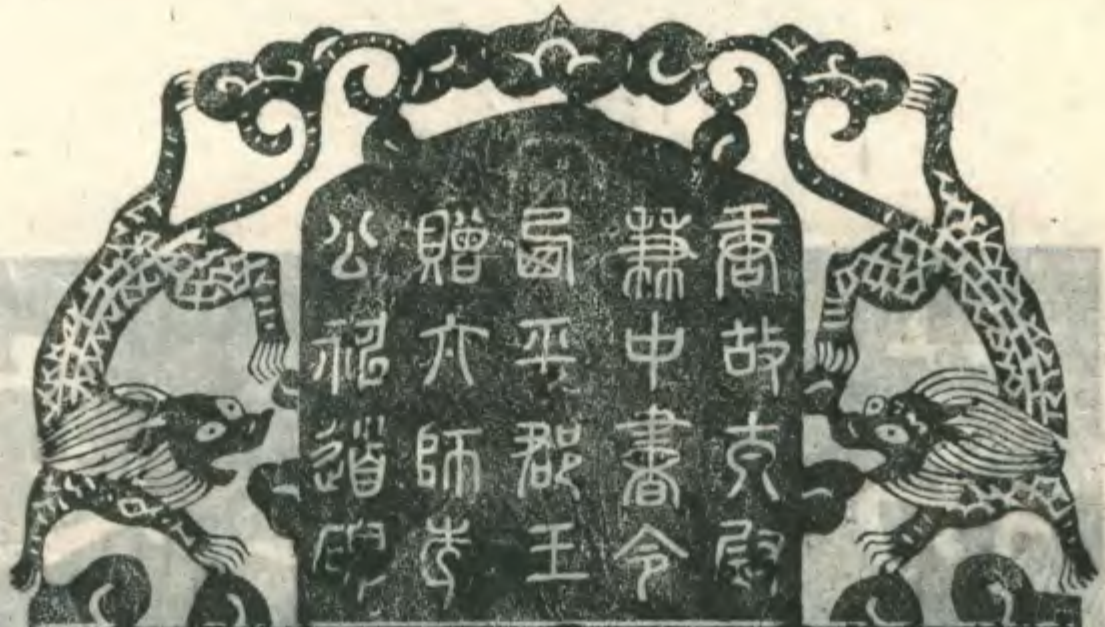 唐故太尉
兼中書令
西平郡王
贈太師李
公神道碑